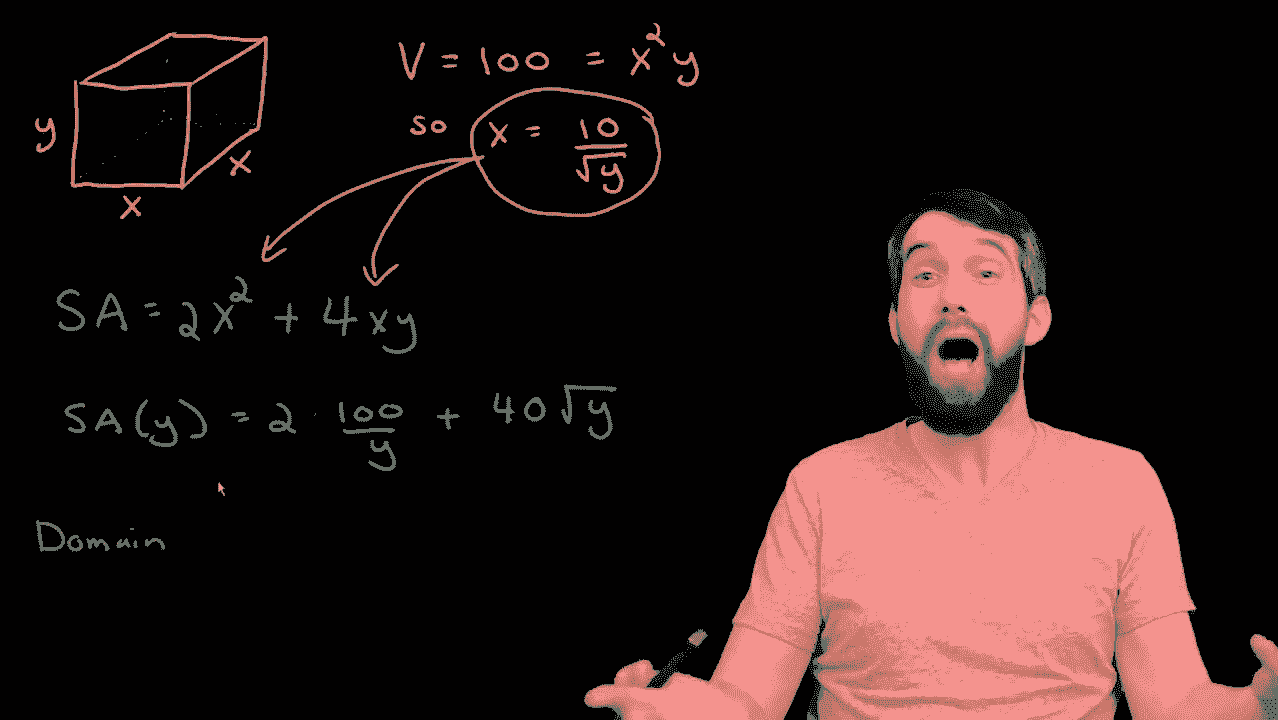 V = 100 = x²y
so x = 10/√y
y
x
x
SA = 2x² + 4xy
SA(y) = 2 · 100/y + 40√y
Domain